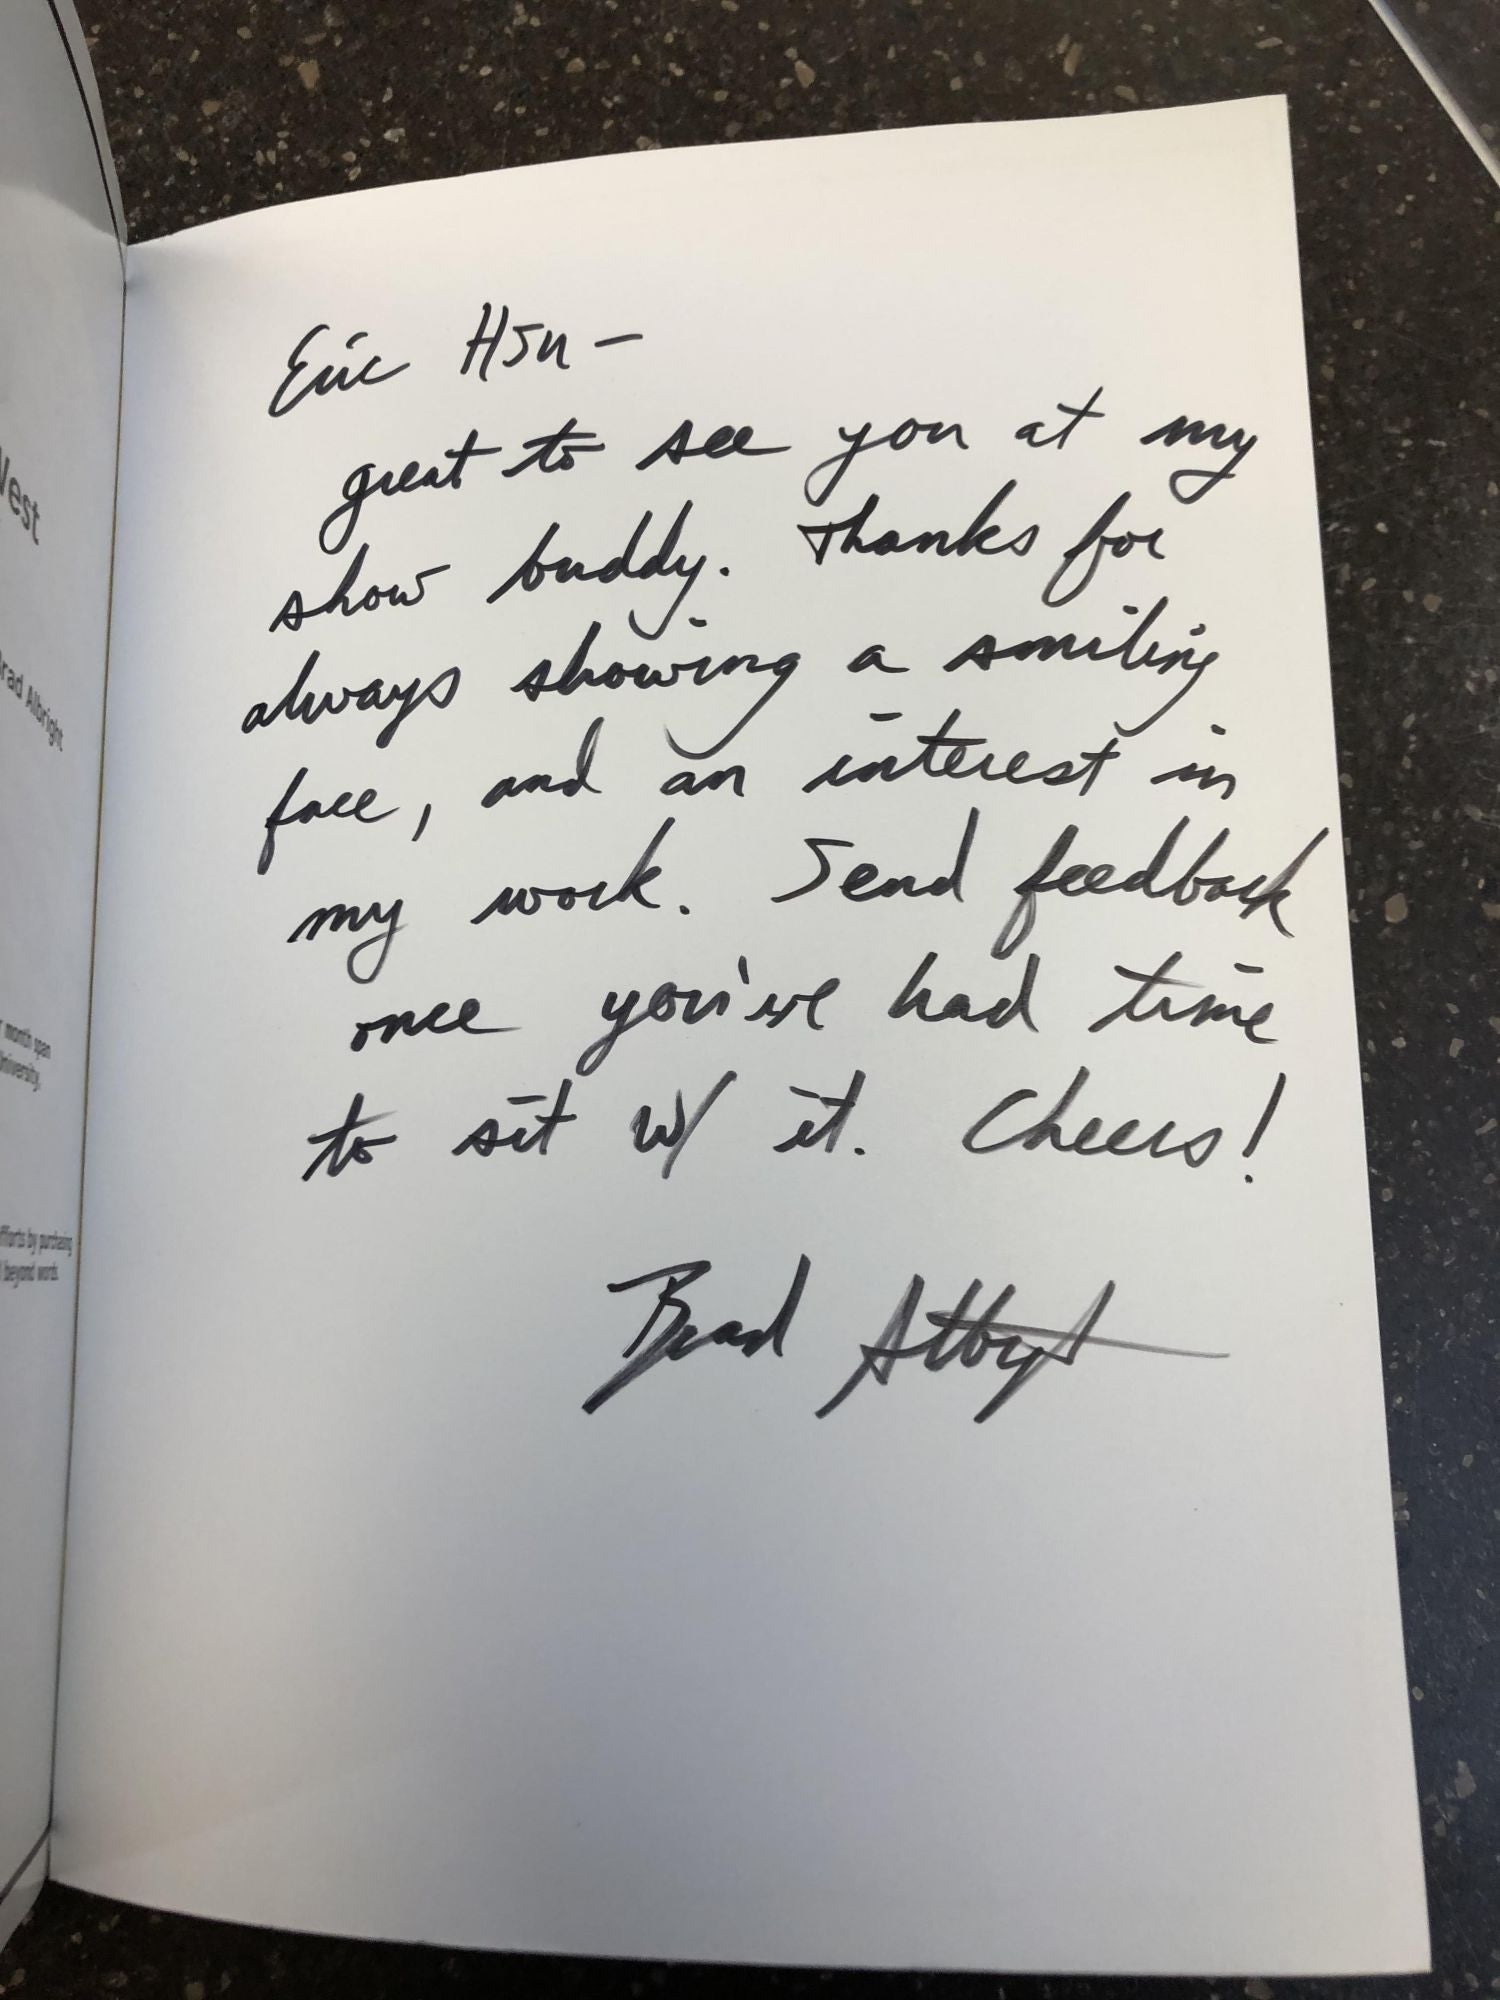 West
Brad Albright
month span
University,
efforts by purchasing
beyond words.
Eric Hsu –
great to see you at my
show buddy. Thanks for
always showing a smiling
face, and an interest in
my work. Send feedback
once you've had time
to sit w/ it. Cheers!
Brad Albright